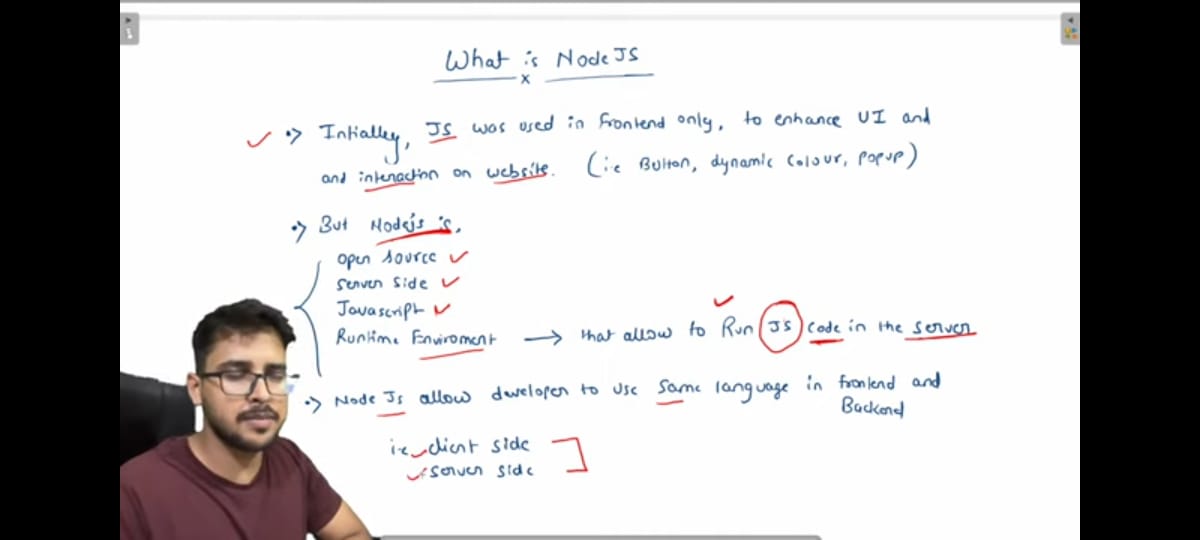 What is NodeJS
x
•> Intially, JS was used in Frontend only, to enhance UI and
and interaction on website. (i.e Button, dynamic colour, popup)
•> But Nodejs is,
open source
server side
Javascript
Runtime Enviroment → that allow to Run JS code in the server
•> Node Js allow developer to use same language in frontend and
Backend
i.e client side
server side